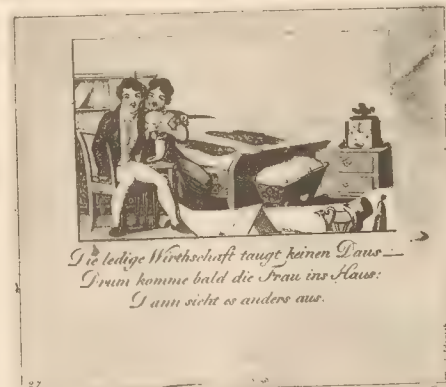 Die ledige Wirthschaft taugt keinen Daus
Drum komme bald die Frau ins Haus:
Dann sieht es anders aus.
97